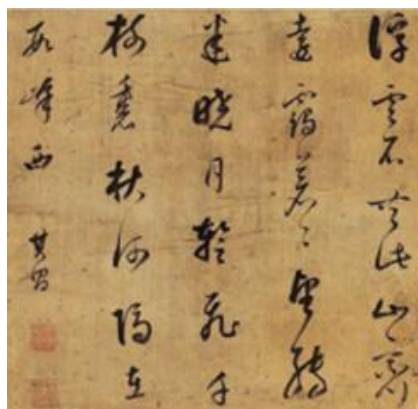 浮雲不共此山齊
遠靄蒼〻望轉
迷曉月暫飛千
樹裏秋河隔在
數峰西 其昌